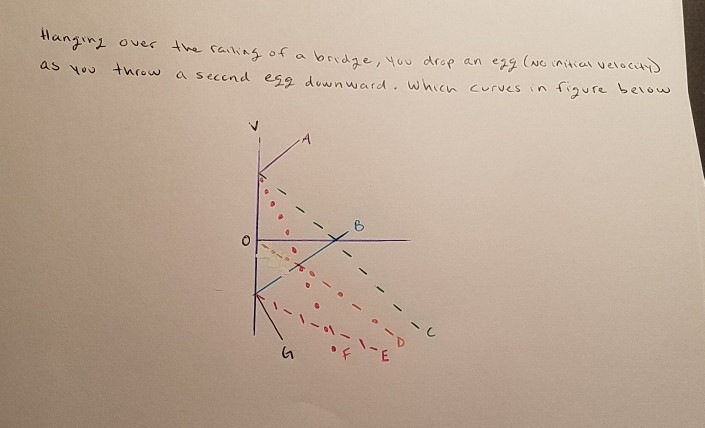 Hanging over the railing of a bridge, you drop an egg (no initial velocity)
as you throw a second egg downward. Which curves in figure below
V
A
B
O
C
D
E
F
G